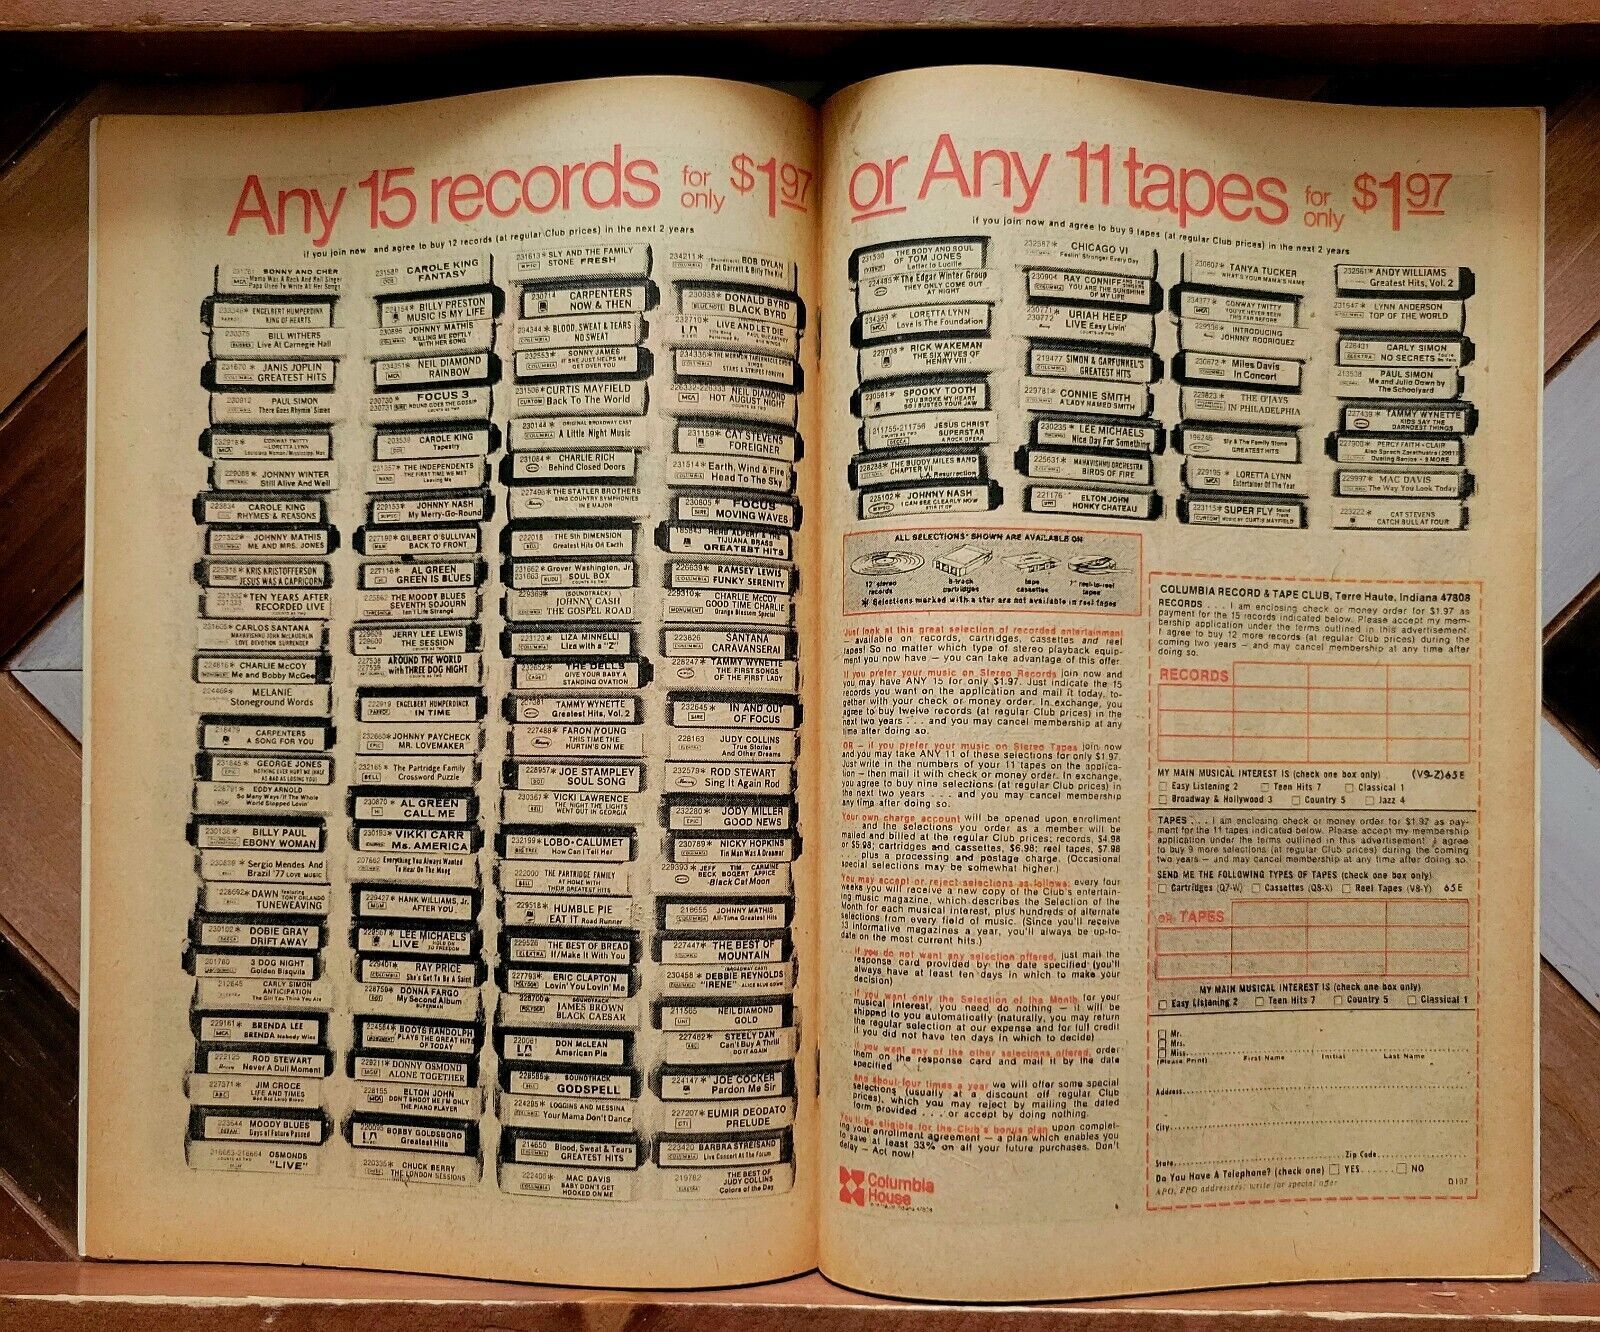 Any 15 records for only $1.97
or Any 11 tapes for only $1.97
if you join now and agree to buy 12 records (at regular Club prices) in the next 2 years
if you join now and agree to buy 9 tapes (at regular Club prices) in the next 2 years
SONNY AND CHER
Mama Was A Rock And Roll Singer
Papa Used To Write All Her Songs
ENGELBERT HUMPERDINK
KING OF HEARTS
BILL WITHERS
Live At Carnegie Hall
231670* JANIS JOPLIN
GREATEST HITS
PAUL SIMON
There Goes Rhymin' Simon
CONWAY TWITTY
LORETTA LYNN
Louisiana Woman/Mississippi Man
JOHNNY WINTER
Still Alive And Well
223834 CAROLE KING
RHYMES & REASONS
227322* JOHNNY MATHIS
ME AND MRS. JONES
KRIS KRISTOFFERSON
JESUS WAS A CAPRICORN
TEN YEARS AFTER
RECORDED LIVE
CARLOS SANTANA
MAHAVISHNU JOHN McLAUGHLIN
LOVE DEVOTION SURRENDER
224816* CHARLIE McCOY
Me and Bobby McGee
224469* MELANIE
Stoneground Words
218479 CARPENTERS
A SONG FOR YOU
231845* GEORGE JONES
226791* EDDY ARNOLD
So Many Ways/If The Whole
World Stopped Lovin'
230136* BILLY PAUL
EBONY WOMAN
230839* Sergio Mendes And
Brazil '77 LOVE MUSIC
228692* DAWN featuring
TONY ORLANDO
TUNEWEAVING
230102* DOBIE GRAY
DRIFT AWAY
201780 3 DOG NIGHT
Golden Bisquits
212645 CARLY SIMON
ANTICIPATION
229161* BRENDA LEE
BRENDA
222125 ROD STEWART
Never A Dull Moment
227371* JIM CROCE
LIFE AND TIMES
223644 MOODY BLUES
Days of Future Passed
216663-216664 OSMONDS
"LIVE"
231589 CAROLE KING
FANTASY
BILLY PRESTON
MUSIC IS MY LIFE
230896 JOHNNY MATHIS
KILLING ME SOFTLY
WITH HER SONG
234351* NEIL DIAMOND
RAINBOW
230730* FOCUS 3
CAROLE KING
Tapestry
231357* THE INDEPENDENTS
THE FIRST TIME WE MET
Leaving Me
229153* JOHNNY NASH
My Merry-Go-Round
227190* GILBERT O'SULLIVAN
BACK TO FRONT
227116* AL GREEN
GREEN IS BLUES
225862* THE MOODY BLUES
SEVENTH SOJOURN
JERRY LEE LEWIS
THE SESSION
AROUND THE WORLD
with THREE DOG NIGHT
222919 ENGELBERT HUMPERDINCK
IN TIME
232660* JOHNNY PAYCHECK
MR. LOVEMAKER
232165* The Partridge Family
Crossword Puzzle
230870* AL GREEN
CALL ME
230193* VIKKI CARR
Ms. AMERICA
207662 Everything You Always Wanted
To Hear On The Moog
229427* HANK WILLIAMS, Jr.
AFTER YOU
LEE MICHAELS
LIVE
229401* RAY PRICE
She's Got To Be A Saint
228759* DONNA FARGO
My Second Album
SUPERMAN
224584* BOOTS RANDOLPH
PLAYS THE GREAT HITS
OF TODAY
228211* DONNY OSMOND
ALONE TOGETHER
228155 ELTON JOHN
DON'T SHOOT ME I'M ONLY
THE PIANO PLAYER
220095 BOBBY GOLDSBORO
Greatest Hits
220335* CHUCK BERRY
THE LONDON SESSIONS
231613* SLY AND THE FAMILY
STONE FRESH
230714 CARPENTERS
NOW & THEN
234344* BLOOD, SWEAT & TEARS
NO SWEAT
232553* SONNY JAMES
IF SHE JUST HELPS ME
GET OVER YOU
231506* CURTIS MAYFIELD
Back To The World
230144* ORIGINAL BROADWAY CAST
A Little Night Music
231084* CHARLIE RICH
Behind Closed Doors
227498* THE STATLER BROTHERS
SING COUNTRY SYMPHONIES
IN E MAJOR
222018 The 5th DIMENSION
Greatest Hits On Earth
Grover Washington, Jr.
SOUL BOX
(SOUNDTRACK)
JOHNNY CASH
THE GOSPEL ROAD
223123* LIZA MINNELLI
Liza with a "Z"
232652* THE DELLS
GIVE YOUR BABY A
STANDING OVATION
TAMMY WYNETTE
Greatest Hits, Vol. 2
227488* FARON YOUNG
THIS TIME THE
HURTIN'S ON ME
228957* JOE STAMPLEY
SOUL SONG
230367* VICKI LAWRENCE
THE NIGHT THE LIGHTS
WENT OUT IN GEORGIA
232199* LOBO-CALUMET
How Can I Tell Her
222000 THE PARTRIDGE FAMILY
AT HOME WITH
THEIR GREATEST HITS
229518* HUMBLE PIE
EAT IT Road Runner
229526 THE BEST OF BREAD
If/Make It With You
227793* ERIC CLAPTON
Lovin' You Lovin' Me
228700* SOUNDTRACK
JAMES BROWN
BLACK CAESAR
220061 DON McLEAN
American Pie
228585* SOUNDTRACK
GODSPELL
224295* LOGGINS AND MESSINA
Your Mama Don't Dance
214650 Blood, Sweat & Tears
GREATEST HITS
222406* MAC DAVIS
BABY DON'T GET
HOOKED ON ME
234211* BOB DYLAN
Pat Garrett & Billy The Kid
230938* DONALD BYRD
BLACK BYRD
232710* LIVE AND LET DIE
234336* THE MORMON TABERNACLE CHOIR
STARS & STRIPES FOREVER
NEIL DIAMOND
HOT AUGUST NIGHT
231159* CAT STEVENS
FOREIGNER
231514* Earth, Wind & Fire
Head To The Sky
230805* FOCUS
MOVING WAVES
HERB ALPERT & THE
TIJUANA BRASS
GREATEST HITS
226639* RAMSEY LEWIS
FUNKY SERENITY
229310* CHARLIE McCOY
GOOD TIME CHARLIE
Orange Blossom Special
223826 SANTANA
CARAVANSERAI
228247* TAMMY WYNETTE
THE FIRST SONGS
OF THE FIRST LADY
232645* IN AND OUT
OF FOCUS
228163 JUDY COLLINS
True Stories
And Other Dreams
232579* ROD STEWART
Sing It Again Rod
232280* JODY MILLER
GOOD NEWS
230789* NICKY HOPKINS
Tin Man Was A Dreamer
229393* JEFF BECK TIM BOGERT CARMINE APPICE
-Black Cat Moon
218655 JOHNNY MATHIS
All-Time Greatest Hits
227447* THE BEST OF
MOUNTAIN
230458* DEBBIE REYNOLDS
"IRENE" ALICE BLUE GOWN
211565 NEIL DIAMOND
GOLD
227462* STEELY DAN
Can't Buy A Thrill
DO IT AGAIN
224147* JOE COCKER
Pardon Me Sir
227207* EUMIR DEODATO
PRELUDE
223420 BARBRA STREISAND
Live Concert At The Forum
219782 THE BEST OF
JUDY COLLINS
Colors of the Day
231530 THE BODY AND SOUL
OF TOM JONES
Letter to Lucille
224485* The Edgar Winter Group
THEY ONLY COME OUT
AT NIGHT
LORETTA LYNN
Love Is The Foundation
229708* RICK WAKEMAN
THE SIX WIVES OF
HENRY VIII
230581* SPOOKY TOOTH
YOU BROKE MY HEART
SO I BUSTED YOUR JAW
211755-211756 JESUS CHRIST
SUPERSTAR
A ROCK OPERA
228288* THE BUDDY MILES BAND
CHAPTER VII
L.A. Resurrection
225102* JOHNNY NASH
I CAN SEE CLEARLY NOW
STIR IT UP
232587* CHICAGO VI
Feelin' Stronger Every Day
230904 RAY CONNIFF AND THE SINGERS
YOU ARE THE SUNSHINE
OF MY LIFE
230771*
230772 URIAH HEEP
LIVE Easy Livin'
219477 SIMON & GARFUNKEL'S
GREATEST HITS
229781* CONNIE SMITH
A LADY NAMED SMITH
230235* LEE MICHAELS
Nice Day For Something
225631* MAHAVISHNU ORCHESTRA
BIRDS OF FIRE
221176* ELTON JOHN
HONKY CHATEAU
230607* TANYA TUCKER
WHAT'S YOUR MAMA'S NAME
234377* CONWAY TWITTY
YOU'VE NEVER BEEN
THIS FAR BEFORE
INTRODUCING
JOHNNY RODRIGUEZ
230672* Miles Davis
In Concert
229823* THE O'JAYS
IN PHILADELPHIA
196246 Sly & The Family Stone
GREATEST HITS
229195* LORETTA LYNN
Entertainer Of The Year
223115* SUPER FLY Sound Track
MUSIC BY CURTIS MAYFIELD
232561* ANDY WILLIAMS
Greatest Hits, Vol. 2
231547* LYNN ANDERSON
TOP OF THE WORLD
CARLY SIMON
NO SECRETS
213538 PAUL SIMON
Me and Julio Down by
The Schoolyard
227439* TAMMY WYNETTE
KIDS SAY THE
DARNDEST THINGS
227900* PERCY FAITH - CLAIR
Also Sprach Zarathustra (2001)
Dueling Banjos - 9 MORE
229997* MAC DAVIS
The Way You Look Today
223222* CAT STEVENS
CATCH BULL AT FOUR
ALL SELECTIONS* SHOWN ARE AVAILABLE ON
12" stereo records
8-track cartridges
tape cassettes
7" reel-to-reel tapes
* Selections marked with a star are not available in reel tapes
Just look at this great selection of recorded entertainment
— available on records, cartridges, cassettes and reel
tapes! So no matter which type of stereo playback equip-
ment you now have — you can take advantage of this offer.
If you prefer your music on Stereo Records join now and
you may have ANY 15 for only $1.97. Just indicate the 15
records you want on the application and mail it today, to-
gether with your check or money order. In exchange, you
agree to buy twelve records (at regular Club prices) in the
next two years . . . and you may cancel membership at any
time after doing so.
OR — if you prefer your music on Stereo Tapes join now
and you may take ANY 11 of these selections for only $1.97.
Just write in the numbers of your 11 tapes on the applica-
tion — then mail it with check or money order. In exchange,
you agree to buy nine selections (at regular Club prices) in
the next two years . . . and you may cancel membership
any time after doing so.
Your own charge account will be opened upon enrollment
. . . and the selections you order as a member will be
mailed and billed at the regular Club prices: records, $4.98
or $5.98; cartridges and cassettes, $6.98; reel tapes, $7.98
. . . plus a processing and postage charge. (Occasional
special selections may be somewhat higher.)
You may accept or reject selections as follows: every four
weeks you will receive a new copy of the Club's entertain-
ing music magazine, which describes the Selection of the
Month for each musical interest, plus hundreds of alternate
selections from every field of music. (Since you'll receive
13 informative magazines a year, you'll always be up-to-
date on the most current hits.)
. . . if you do not want any selection offered, just mail the
response card provided by the date specified (you'll
always have at least ten days in which to make your
decision)
. . . if you want only the Selection of the Month for your
musical interest, you need do nothing — it will be
shipped to you automatically (naturally, you may return
the regular selection at our expense and for full credit
if you did not have ten days in which to decide)
. . . if you want any of the other selections offered, order
them on the response card and mail it by the date
specified
. . . and about four times a year we will offer some special
selections (usually at a discount off regular Club
prices), which you may reject by mailing the dated
form provided . . . or accept by doing nothing.
You'll be eligible for the Club's bonus plan upon complet-
ing your enrollment agreement — a plan which enables you
to save at least 33% on all your future purchases. Don't
delay — Act now!
Columbia
House
COLUMBIA RECORD & TAPE CLUB, Terre Haute, Indiana 47808
RECORDS . . . I am enclosing check or money order for $1.97 as
payment for the 15 records indicated below. Please accept my mem-
bership application under the terms outlined in this advertisement.
I agree to buy 12 more records (at regular Club prices) during the
coming two years — and may cancel membership at any time after
doing so.
RECORDS
MY MAIN MUSICAL INTEREST IS (check one box only) (V9-Z)65E
Easy Listening 2 Teen Hits 7 Classical 1
Broadway & Hollywood 3 Country 5 Jazz 4
TAPES . . . I am enclosing check or money order for $1.97 as pay-
ment for the 11 tapes indicated below. Please accept my membership
application under the terms outlined in this advertisement. I agree
to buy 9 more selections (at regular Club prices) during the coming
two years — and may cancel membership at any time after doing so.
SEND ME THE FOLLOWING TYPES OF TAPES (check one box only)
Cartridges (Q7-W) Cassettes (Q8-X) Reel Tapes (V8-Y) 65E
OR TAPES
MY MAIN MUSICAL INTEREST IS (check one box only)
Easy Listening 2 Teen Hits 7 Country 5 Classical 1
Mr.
Mrs.
Miss
(Please Print) First Name Initial Last Name
Address
City
State Zip Code
Do You Have A Telephone? (check one) YES NO
APO, FPO addressees: write for special offer
D197